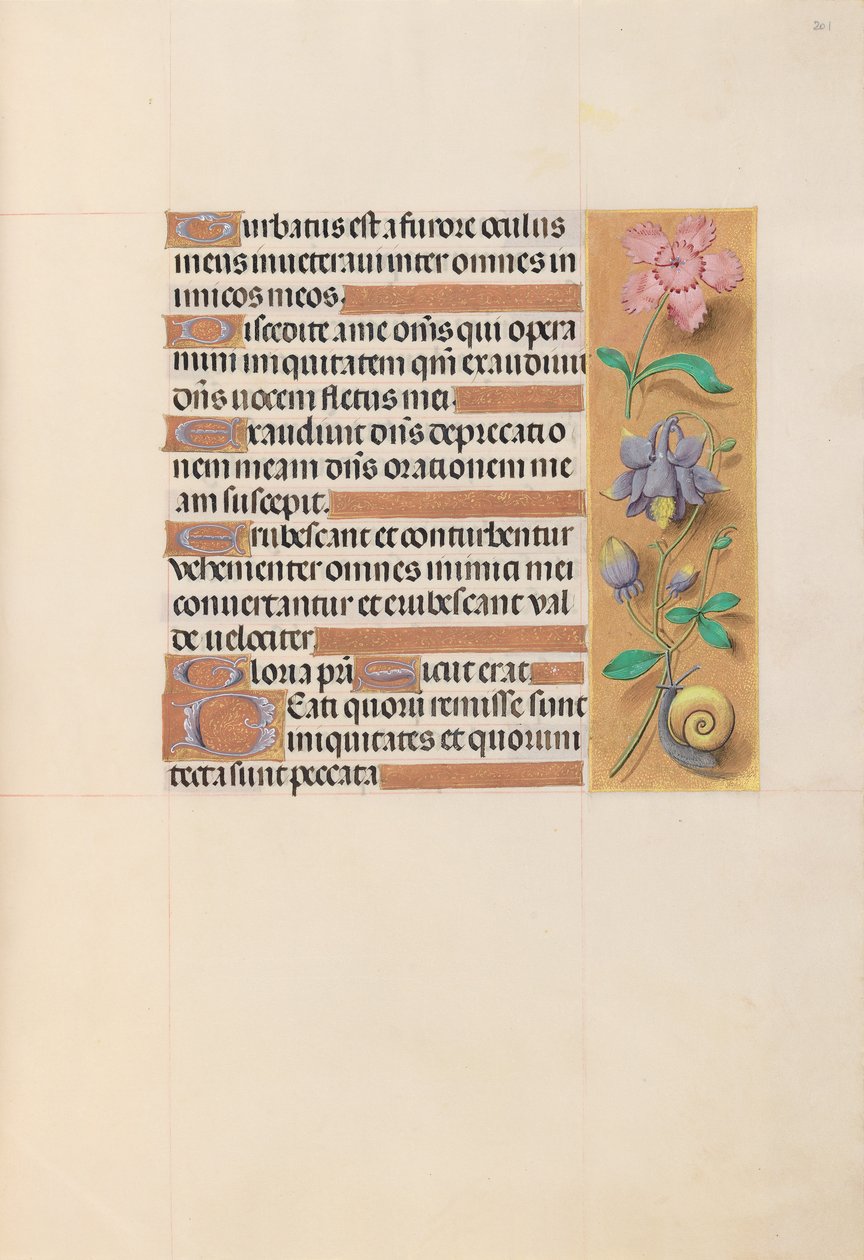 201
Turbatus est a furore oculus
meus inueteraui inter omnes in
imicos meos.
Discedite a me om̄s qui opera
mini iniquitatem qm̄ exaudiuit
dn̄s uocem fletus mei.
Exaudiuit dn̄s deprecatio
nem meam dn̄s orationem me
am suscepit.
Erubescant et conturbentur
vehementer omnes inimici mei
conuertantur et erubescant val
de uelociter
Gloria pr̄i Sicut erat.
BEati quorū remisse sunt
iniquitates et quorum
tecta sunt peccata